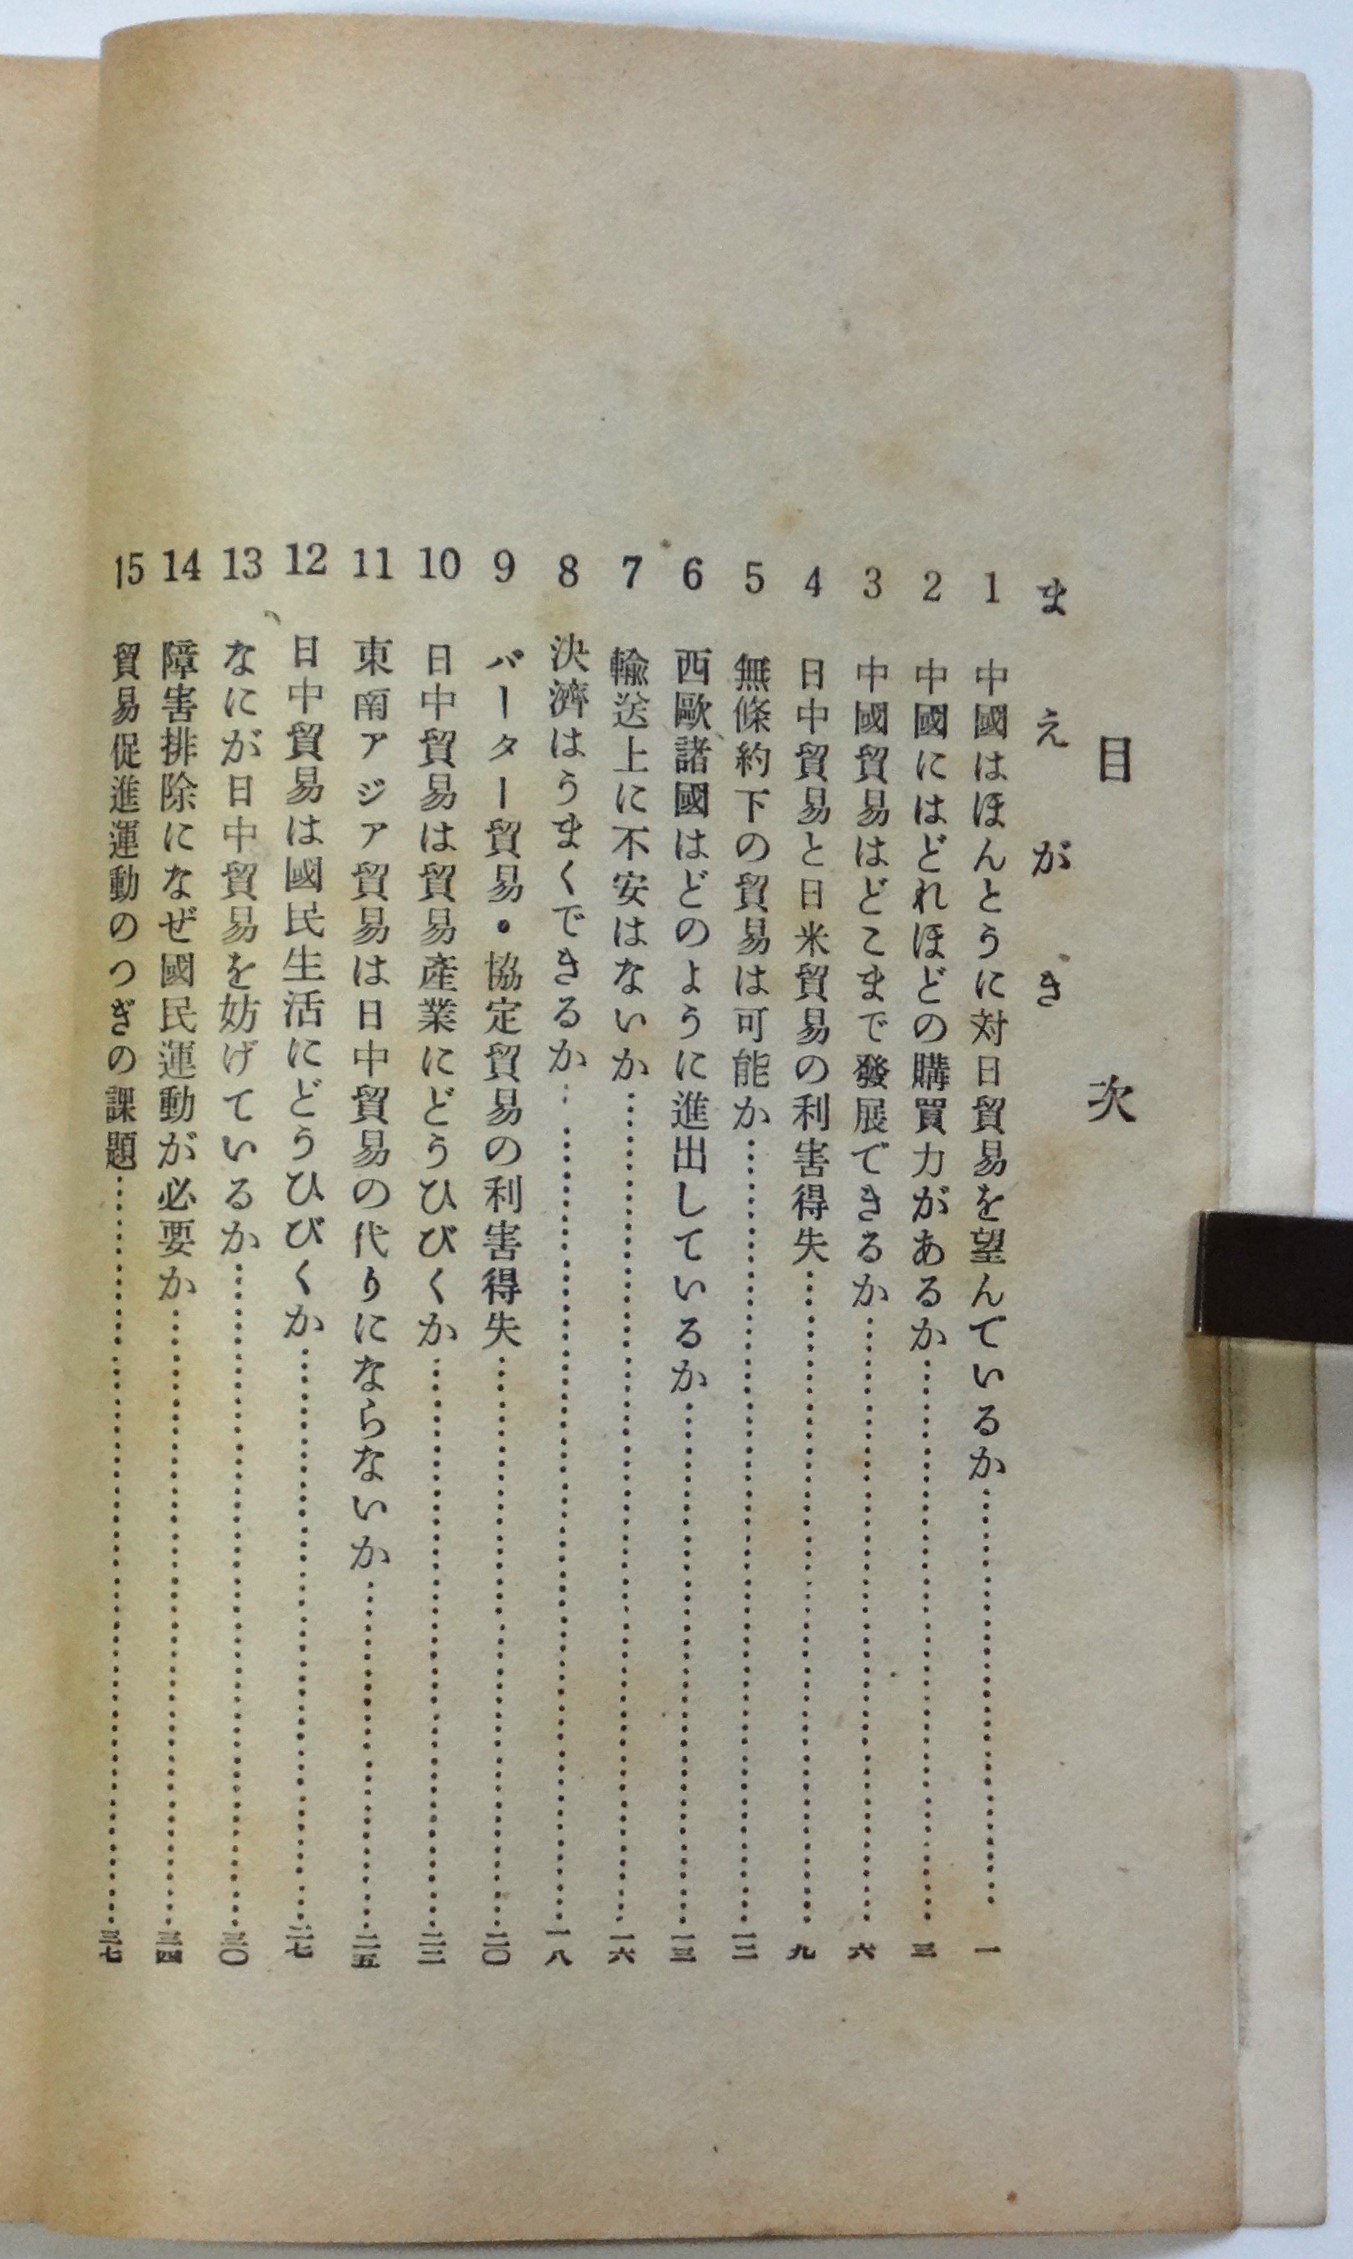 目次
まえがき
1 中國はほんとうに対日貿易を望んでいるか……一
2 中國にはどれほどの購買力があるか……三
3 中國貿易はどこまで發展できるか……六
4 日中貿易と日米貿易の利害得失……九
5 無條約下の貿易は可能か……一二
6 西歐諸國はどのように進出しているか……一三
7 輸送上に不安はないか……一六
8 決濟はうまくできるか……一八
9 バーター貿易・協定貿易の利害得失……二〇
10 日中貿易は貿易產業にどうひびくか……二二
11 東南アジア貿易は日中貿易の代りにならないか……二五
12 日中貿易は國民生活にどうひびくか……二七
13 なにが日中貿易を妨げているか……三〇
14 障害排除になぜ國民運動が必要か……三四
15 貿易促進運動のつぎの課題……三七